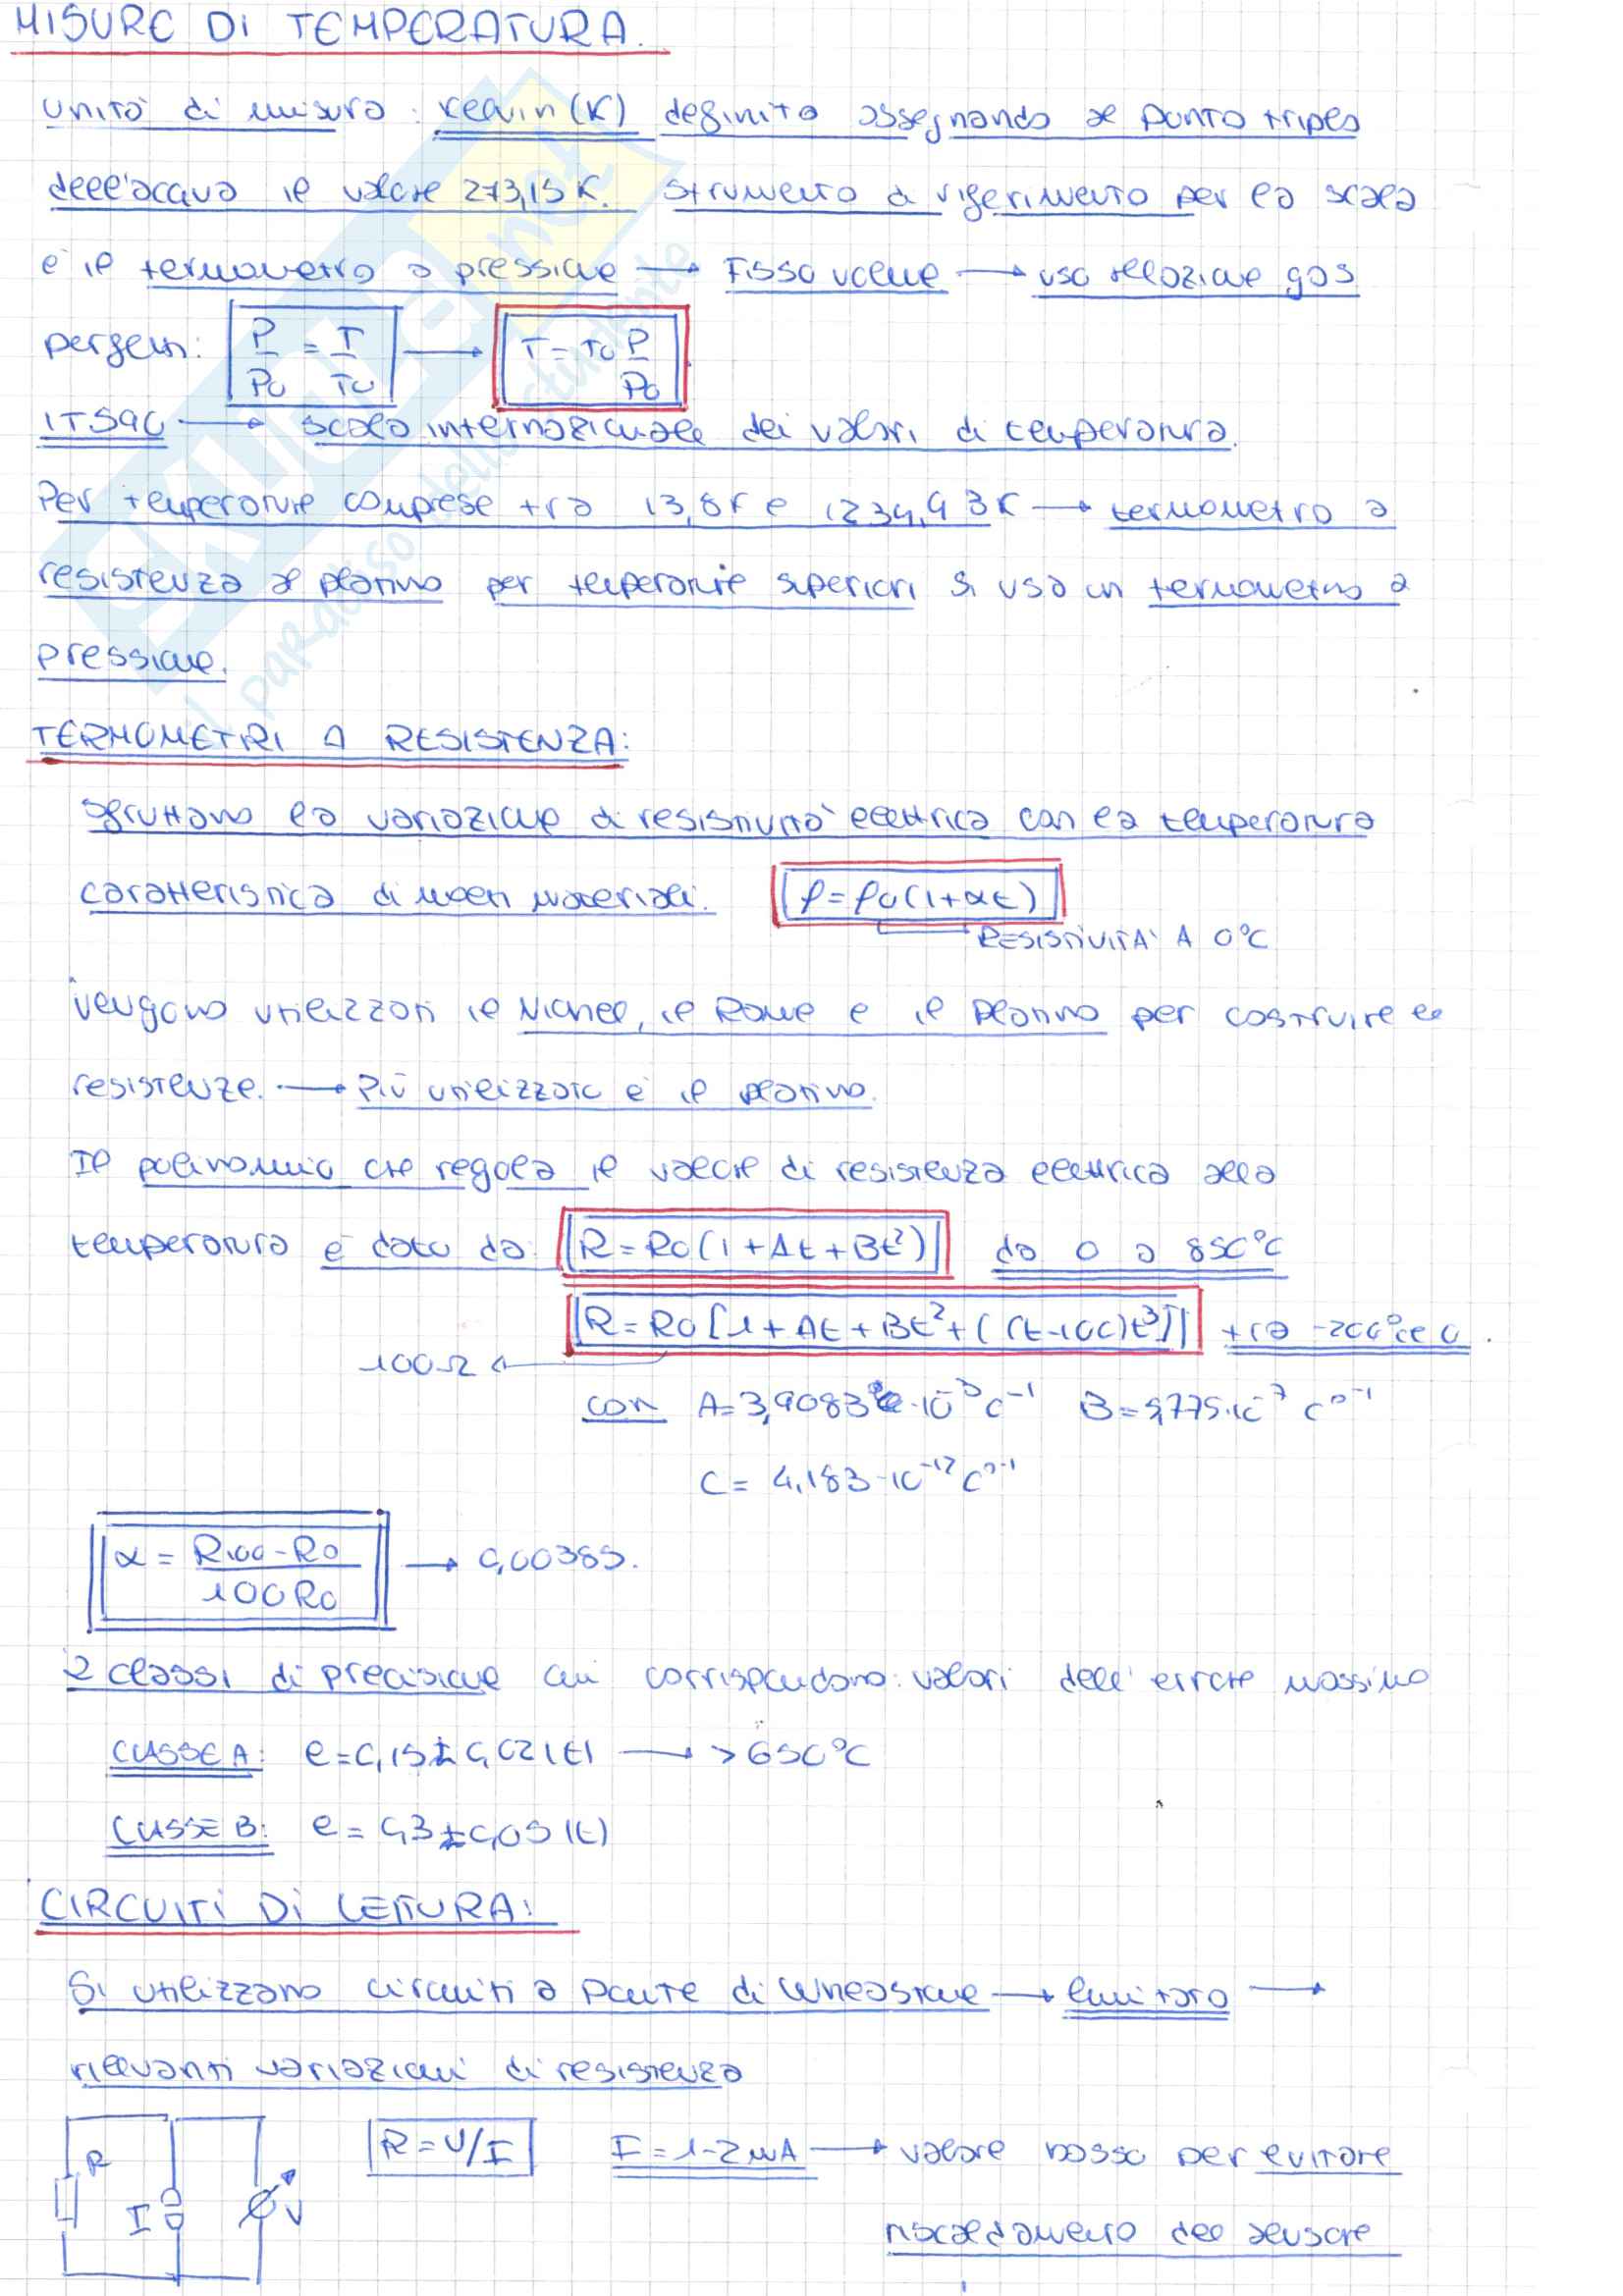 MISURE DI TEMPERATURA.
unità di misura : kelvin (K) definito assegnando al punto triplo
dell'acqua il valore 273,15 K. strumento di riferimento per la scala
è il termometro a pressione → Fisso volume → uso relazione gas
perfetti: P/P0 = T/T0 → T = T0 P/P0
ITS90 → scala internazionale dei valori di temperatura.
Per temperature comprese tra 13,8K e 1234,93K → termometro a
resistenza al platino per temperature superiori si usa un termometro a
pressione.
TERMOMETRI A RESISTENZA:
sfruttano la variazione di resistività elettrica con la temperatura
caratteristica di molti materiali. ρ = ρ0(1+αt)
RESISTIVITA' A 0°C
vengono utilizzati il Nichel, il Rame e il Platino per costruire le
resistenze. → Più utilizzato è il platino.
Il polinomio che regola il valore di resistenza elettrica alla
temperatura è dato da: R = R0(1+At+Bt²) da 0 a 850°C
R = R0[1+At+Bt²+C(t-100)t³] tra -200°C e 0.
100Ω
con A=3,9083·10⁻³C⁻¹ B=5,775·10⁻⁷ C°⁻¹
C = 4,183·10⁻¹²C°⁻¹
α = R100-R0/100R0 → 0,00385.
2 classi di precisione cui corrispondono: valori dell'errore massimo
CLASSE A: e=0,15±0,02|t| → >650°C
CLASSE B: e=0,3±0,05|t|
CIRCUITI DI LETTURA:
Si utilizzano circuiti a Ponte di Wheastone → limitato →
rilevanti variazioni di resistenza
R = V/I I=1-2mA → valore basso per evitare
R I V
riscaldamento del sensore
SKUOLA.net
il paradiso dello studente